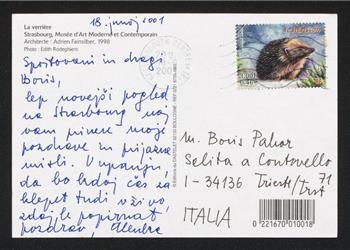 18. junij 2001
La verrière
Strasbourg, Musée d'Art Moderne et Contemporain
Architecte : Adrien Fainsilber, 1998
Photo : Edith Rodeghiero
Spoštovani in dragi
Boris,
lep novejši pogled
na Strasbourg naj
vam prinese moje
pozdrave in prijazne
misli. V upanju,
da bo kdaj čas za
klepet tudi v živo
zdaj le popirnat
pozdrav,
M. Boris Pahor
Salita a Contovello
71
I - 34136 Trieste/Trst
ITALIA
0 221670 010018